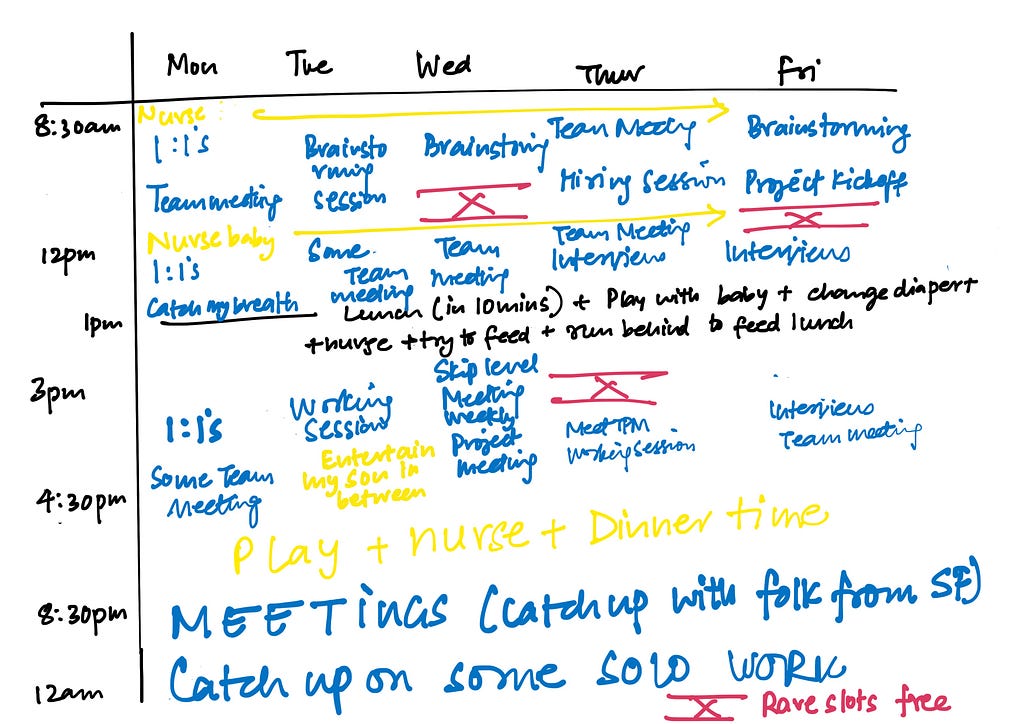 Mon Tue Wed Thur Fri
Nurse:
8:30am
1:1's
Team meeting
Brainsto
rming
session
Brainstoring
X
Team Meeting
Hiring Session
Brainstorming
Project Kickoff
X
Nurse baby
12pm
1:1's
Catch my breath
Some
Team
meeting
Team
meeting
Team Meeting
Interviews
Interviews
1pm
Lunch (in 10mins) + Play with baby + change diaper +
+nurse + try to feed + run behind to feed lunch
3pm
1:1's
Some Team
Meeting
Working
Session
Entertain
my son in
between
Skip level
Meeting
weekly
Project
meeting
X
Meet TPM
Working Session
Interviews
Team meeting
4:30pm
Play + nurse + Dinner time
8:30pm
MEETiNGS (catch up with folk from SF)
Catch up on some solo work
12am
X Rare slots free